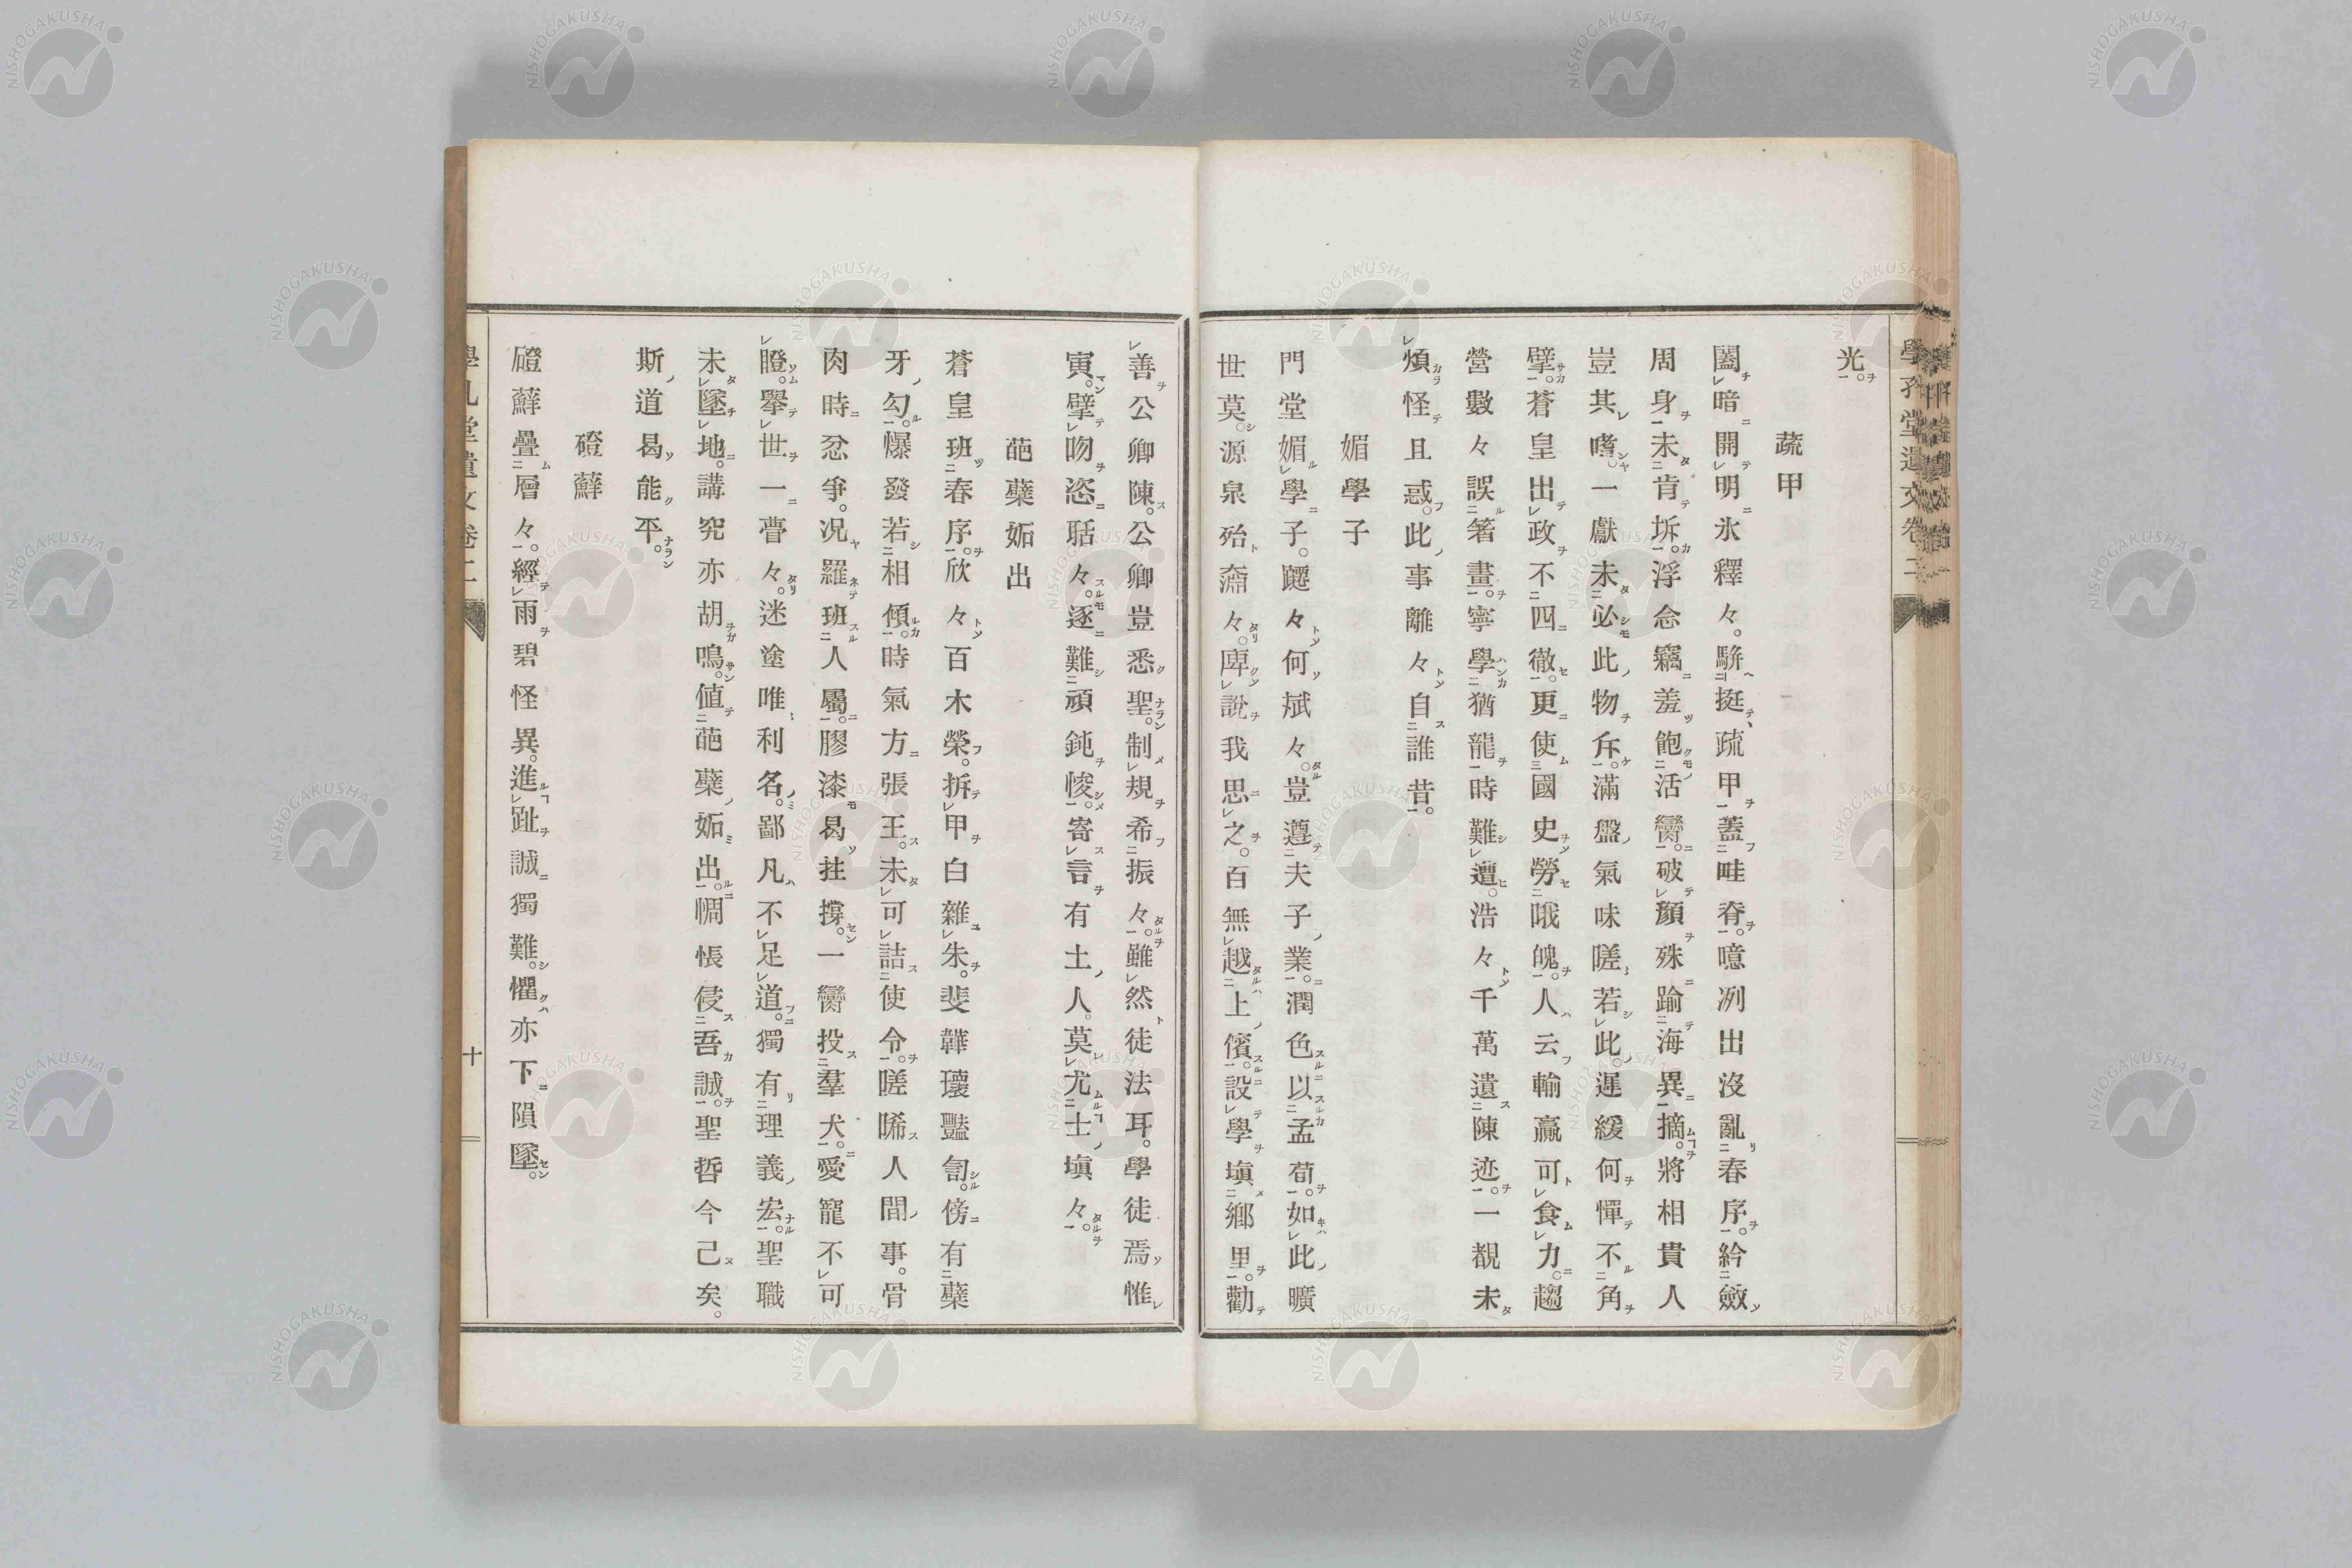 光。
蔬甲
闔暗開明氷釋々。騈挺疏甲蓋畦脊。噫冽出沒亂春序。紟斂
周身未肯坼。浮念竊羞飽活臠。破顏殊踰海異摘。將相貴人
豈其嗜。一獻未必此物斥。滿盤氣味嗟若此。遲緩何憚不角
擘。蒼皇出政不四徹。更使國史勞哦魄。人云輸贏可食力。趨
營數々誤箸畫。寧學猶龍時難遭。浩々千萬遺陳迹。一覩未
煩怪且惑。此事離々自誰昔。
媚學子
門堂媚學子。躚々何斌々。豈遵夫子業。潤色以孟荀。如此曠
世莫。源泉殆奫々。俾說我思之。百無越上儐。設學塡鄉里。勸
善公卿陳。公卿豈悉聖。制規希振々。雖然徒法耳。學徒焉惟
寅。擘吻恣聒々。逐難頑鈍悛。寄言有土人。莫尤士塡々。
葩蘖妬出
蒼皇班春序。欣々百木榮。拆甲白雜朱。斐韡瓌豔匒。傍有蘖
牙勾。爆發若相傾。時氣方張王。未可詰使令。嗟睎人間事。骨
肉時忿爭。況羅班人屬。膠漆曷拄撐。一臠投羣犬。愛寵不可
瞪。擧世一瞢々。迷塗唯利名。鄙凡不足道。獨有理義宏。聖職
未墜地。講究亦胡鳴。値葩蘖妬出。惆悵侵吾誠。聖哲今已矣。
斯道曷能平。
磴蘚
磴蘚疊層々。經雨碧怪異。進趾誠獨難。懼亦下隕墜。
學孔堂遺文卷二
十